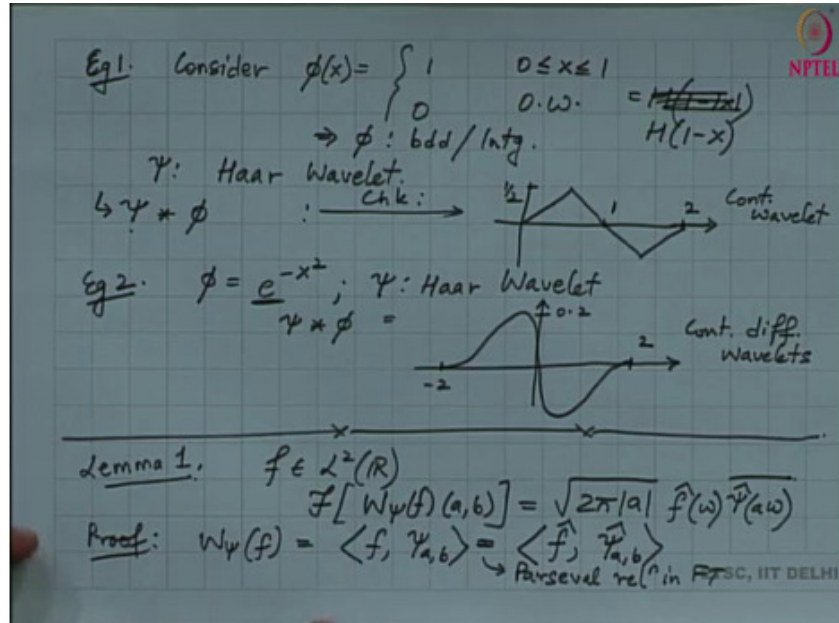 Eg 1. Consider φ(x) = { 1 0 ≤ x ≤ 1
0 O.W. =
H(1-x)
NPTEL
⇒ φ : bdd / Intg.
Ψ: Haar Wavelet.
↳ Ψ * φ : Chk: → 1/2 1 2 Cont. wavelet
Eg 2. φ = e^{-x^2} ; Ψ: Haar Wavelet
Ψ * φ = 0.2 -2 2 Cont. diff. Wavelets
Lemma 1. f ∈ L²(ℝ)
F[W_Ψ(f)(a,b)] = √(2π|a|) f̂(ω) \overline{Ψ̂(aω)}
Proof: W_Ψ(f) = ⟨f, Ψ_{a,b}⟩ = ⟨f̂, Ψ̂_{a,b}⟩
↳ Parseval relⁿ in FT
SC, IIT DELHI